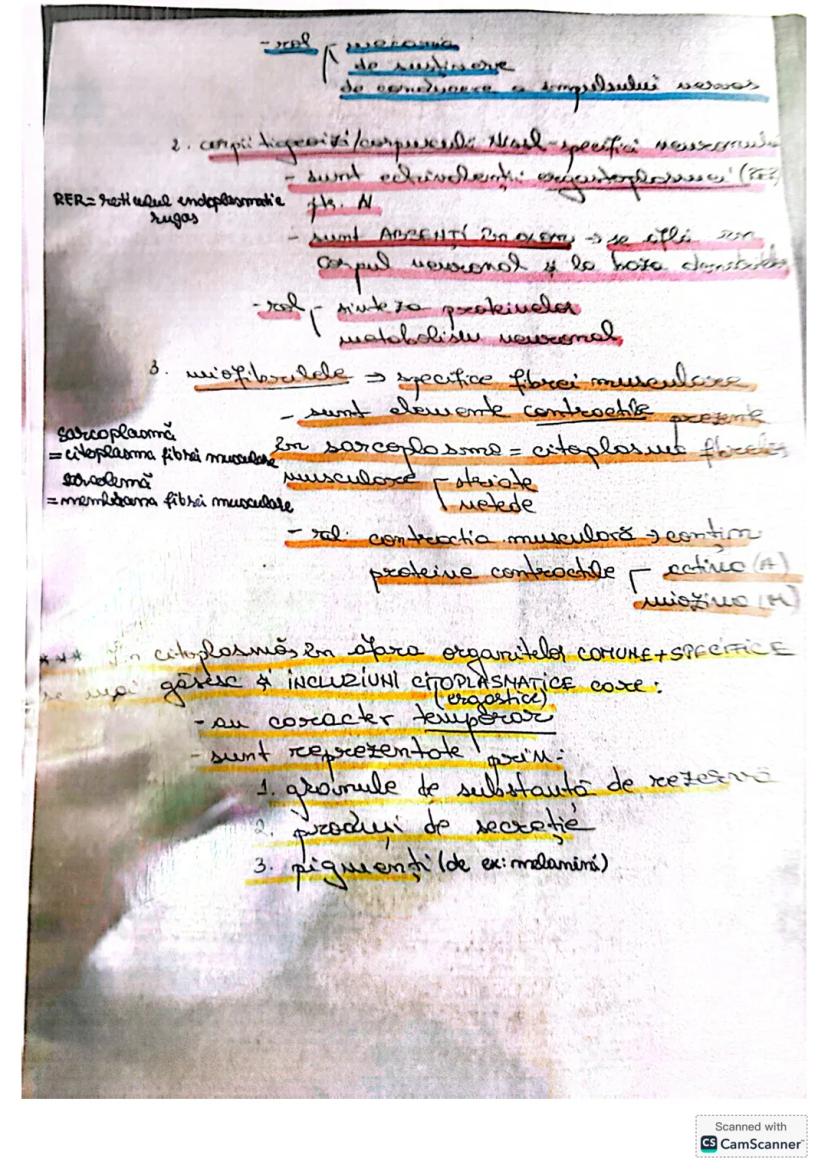 - rol mecanic
de susținere
de conducere a impulsului nervos
2. corpii tigroizi/corpusculi Nissl - specifici neuronului
- sunt echivalenții ergastoplasmei (RER)
RER = reticulul endoplasmatic
rugos
ptr. N
- sunt ABSENȚI în axon → se află în
corpul neuronal și la baza dendritelor
- rol - sinteza proteinelor
metabolism neuronal
3. miofibrilele ⇒ specifice fibrei musculare
- sunt elemente contractile prezente
sarcoplasmă
= citoplasma fibrei musculare
în sarcoplasma = citoplasma fibrelor
sarcolemă
= membrana fibrei musculare
musculare - striate
netede
- rol: contracția musculară → conțin
proteine contractile - actina (A)
miozina (M)
*** În citoplasmă, în afara organitelor COMUNE + SPECIFICE
se mai găsesc și INCLUZIUNI CITOPLASMATICE care:
(ergastice)
- au caracter temporar
- sunt reprezentate prin:
1. granule de substanță de rezervă
2. produși de secreție
3. pigmenți (de ex: melanină)
Scanned with
CS CamScanner